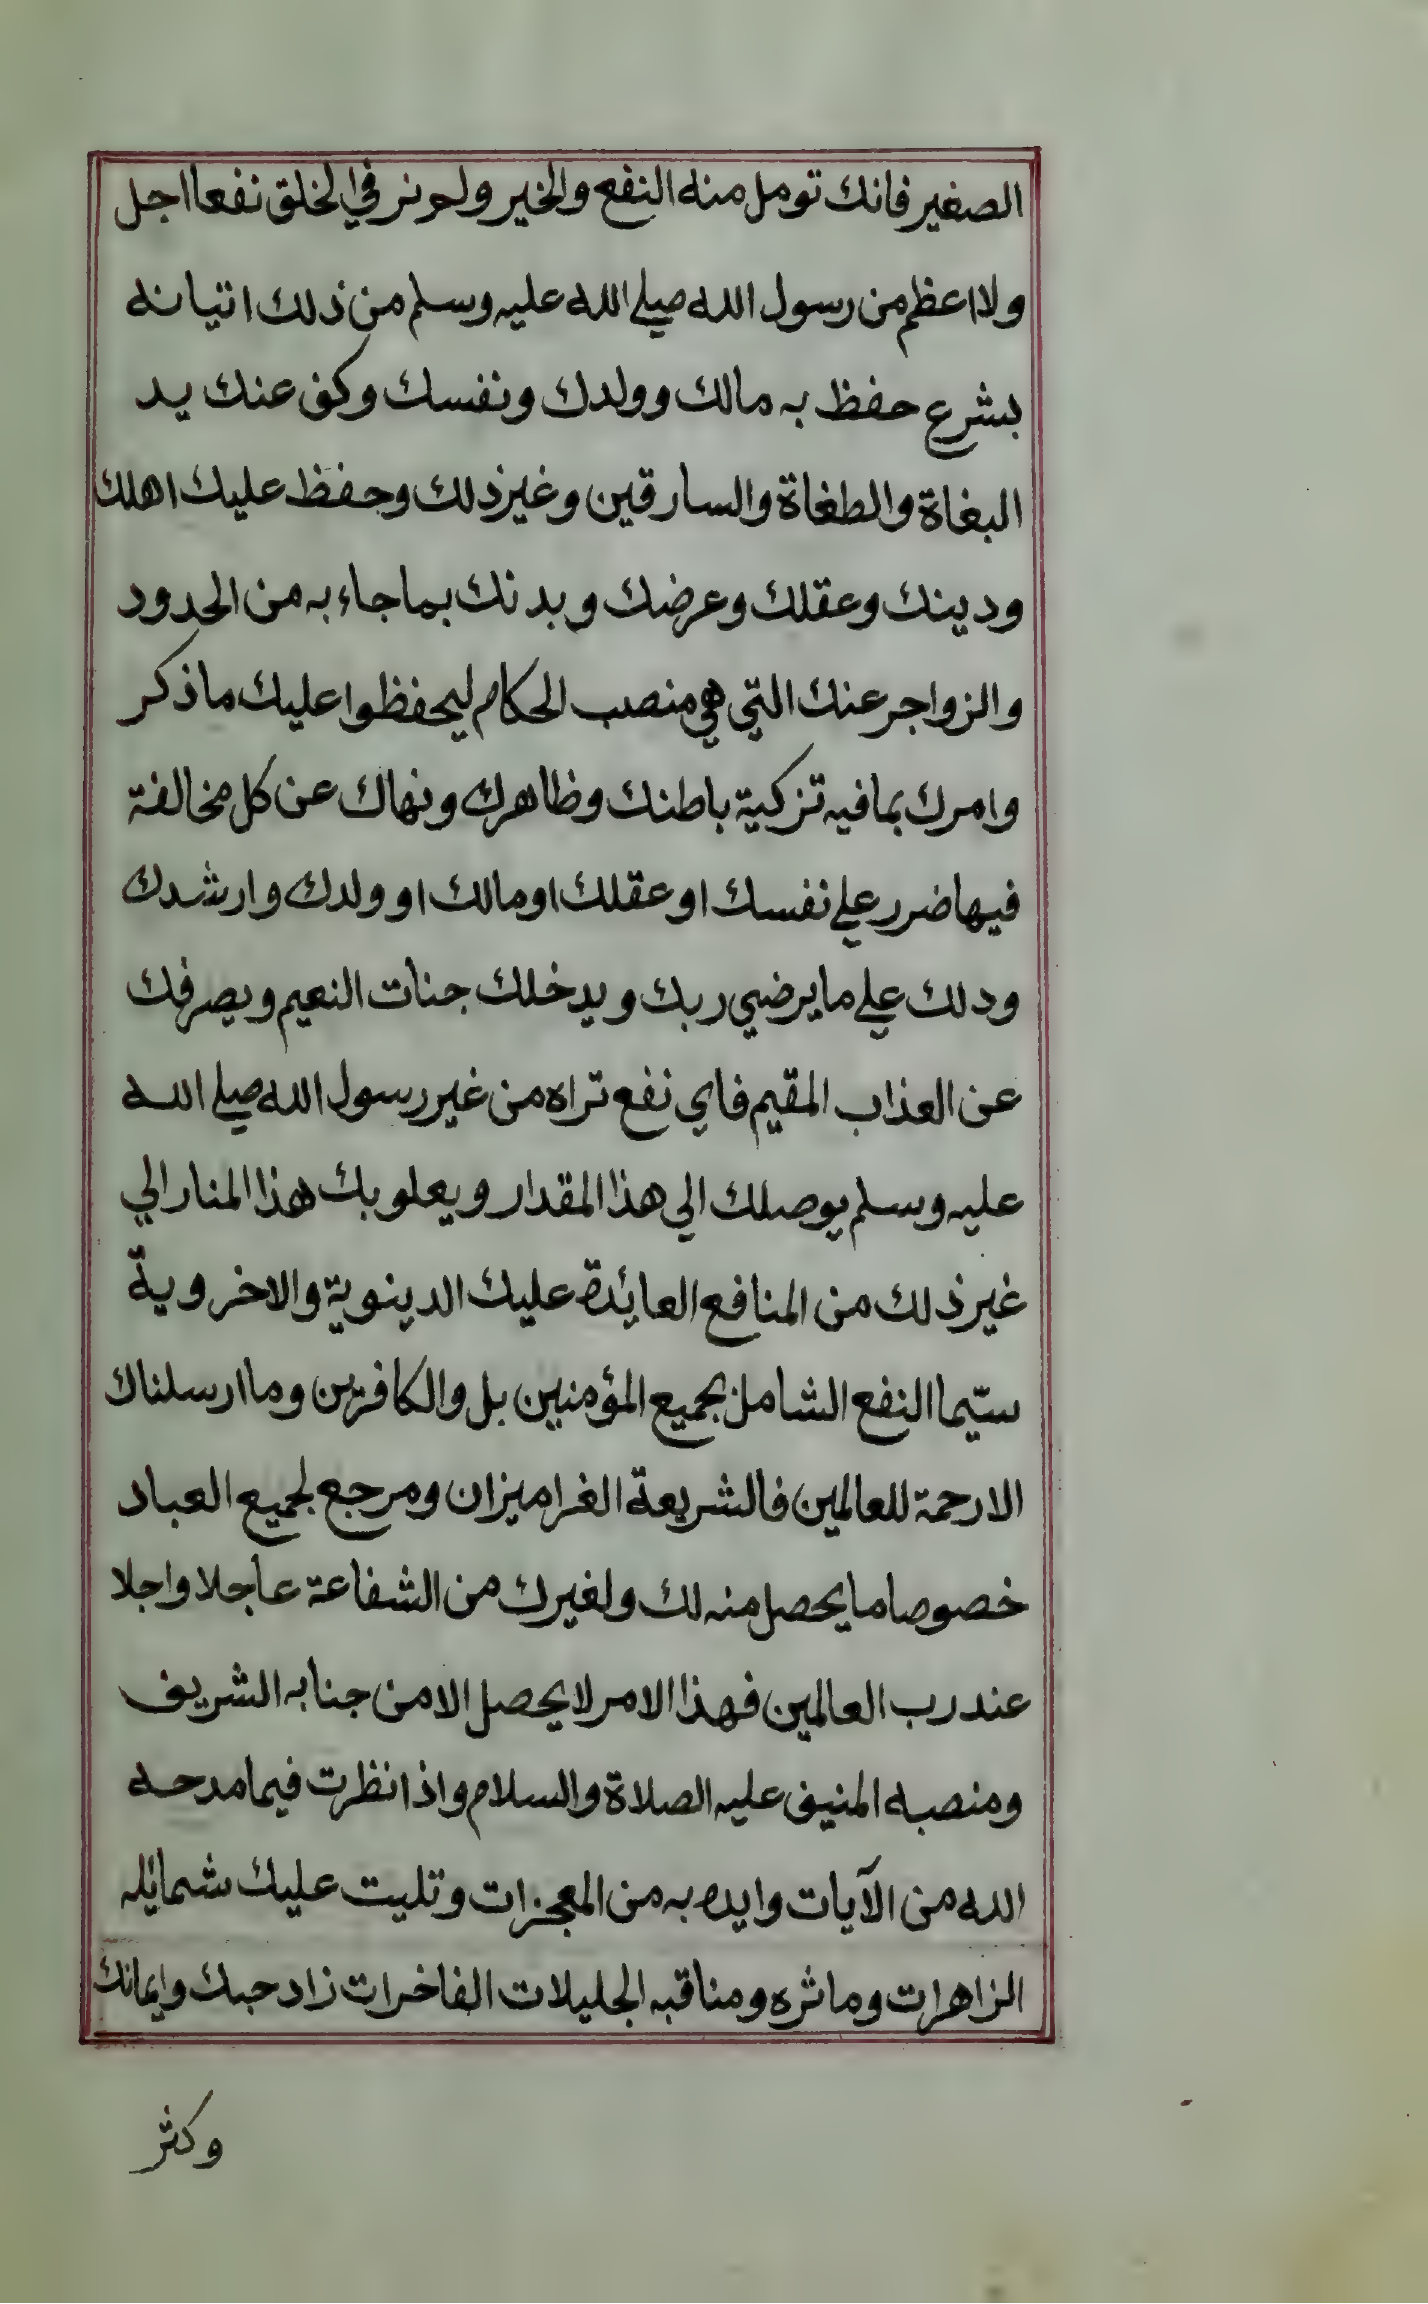 الصغير فانك تومل منه النفع والخير ولم نر في الخلق نفعا اجل
ولا اعظم من رسول الله صلي الله عليه وسلم من ذلك اتيانه
بشرع حفظ به مالك وولدك ونفسك وكف عنك يد
البغاة والطغاة والسارقين وغير ذلك وحفظ عليك اهلك
ودينك وعقلك وعرضك وبدنك بما جاء به من الحدود
والزواجر عنك التي هي منصب الحكام ليحفظوا عليك ما ذكر
وامرك بما فيه تزكية باطنك وظاهرك ونهاك عن كل مخالفة
فيها ضرر علي نفسك او عقلك او مالك او ولدك وارشدك
ودلك علي ما يرضي ربك ويدخلك جنات النعيم ويصرفك
عن العذاب المقيم فاي نفع تراه من غير رسول الله صلي الله
عليه وسلم يوصلك الي هذا المقدار ويعلو بك هذا المنار الي
غير ذلك من المنافع العائدة عليك الدينوية والاخروية
سيّما النفع الشامل لجميع المؤمنين بل والكافرين وما ارسلناك
الا رحمة للعالمين فالشريعة الغرا ميزان ومرجع لجميع العباد
خصوصا ما يحصل منه لك ولغيرك من الشفاعة عاجلا واجلا
عند رب العالمين فهذا الامر لا يحصل الا من جنابه الشريف
ومنصبه المنيف عليه الصلاة والسلام واذا نظرت فيما مدحه
الله من الآيات وايده به من المعجزات وتليت عليك شمائله
الزاهرات وماثره ومناقبه الجليلات الفاخرات زاد حبك وايمانك
وكثر